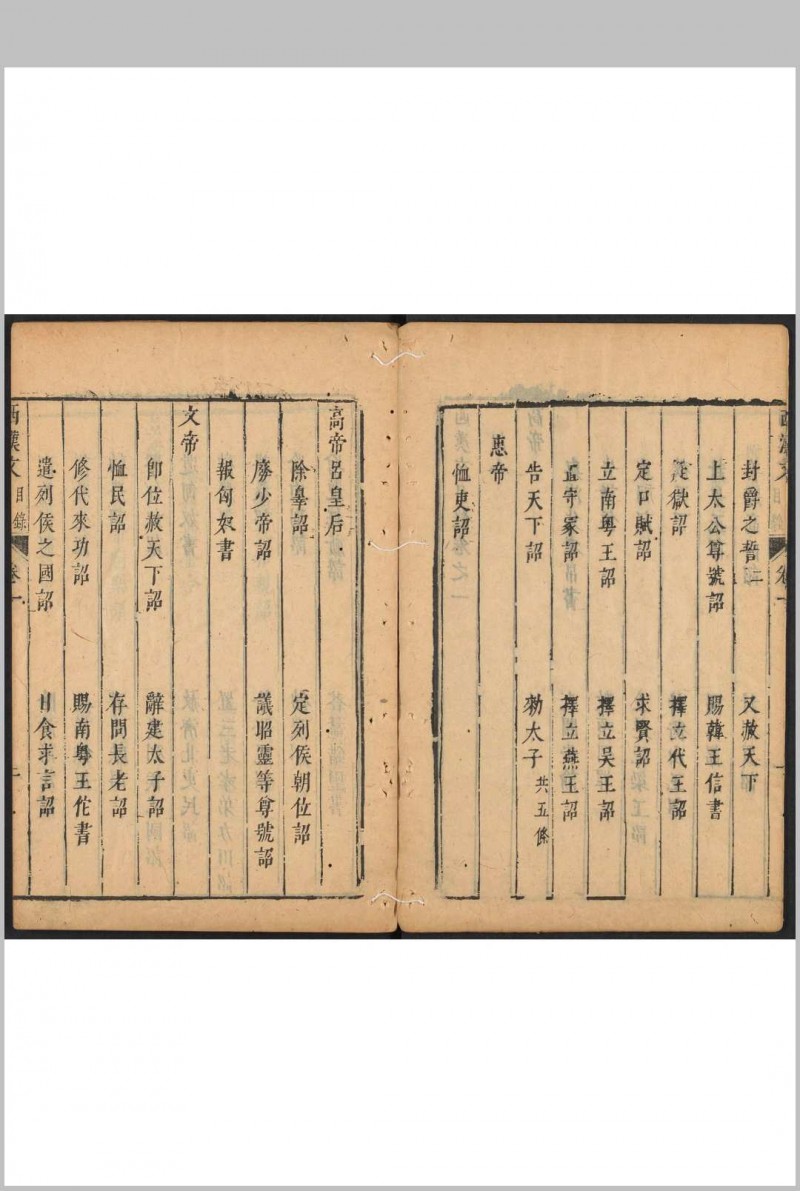 封爵之誓二　又赦天下
上太公尊號詔　賜韓王信書
獄詔　擇立代王詔
定口賦詔　求賢詔
立南粤王詔　擇立吳王詔
守冢詔　擇立燕王詔
告天下詔　勑太子共五條
惠帝
恤吏詔
高帝呂皇后
除辠詔　定列侯朝位詔
廢少帝詔　議昭靈等尊號詔
報匈奴書
文帝
即位赦天下詔　辭建太子詔
恤民詔　存問長老詔
修代來功詔　賜南粤王佗書
遣列侯之國詔　日食求言詔
西漢文　目錄　卷一